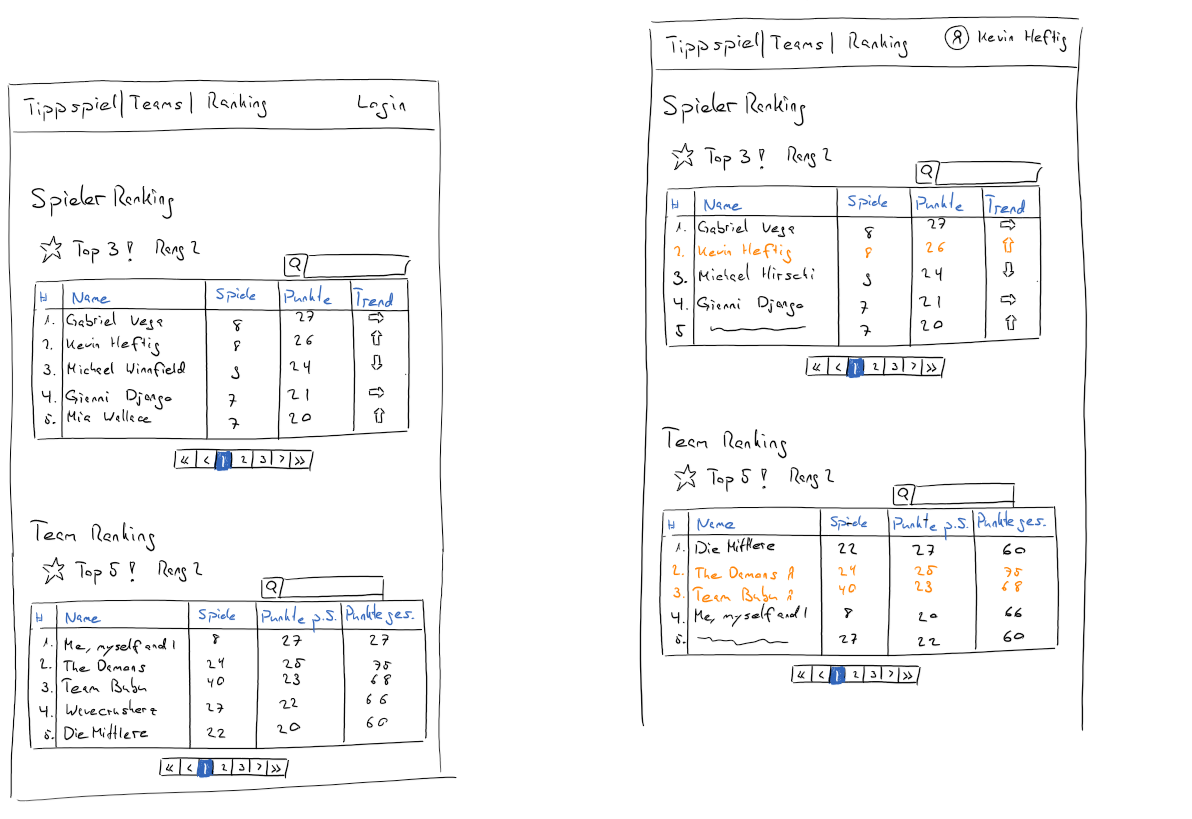 Tippspiel | Teams | Ranking Login
Spieler Ranking
Top 3! Rang 2
# Name Spiele Punkte Trend
1. Gabriel Vega 8 27
2. Kevin Heftig 8 26
3. Michael Winnfield 9 24
4. Gianni Django 7 21
5. Mia Wallace 7 20
« < 1 2 3 > »
Team Ranking
Top 5! Rang 2
# Name Spiele Punkte p.S. Punkte ges.
1. Me, myself and I 8 27 27
2. The Demons 24 25 75
3. Team Bubu 40 23 68
4. Wavecrusherz 27 22 66
5. Die Mittlere 22 20 60
« < 1 2 3 > »
Tippspiel | Teams | Ranking Kevin Heftig
Spieler Ranking
Top 3! Rang 2
# Name Spiele Punkte Trend
1. Gabriel Vega 8 27
2. Kevin Heftig 8 26
3. Michael Hirschi 9 24
4. Gianni Django 7 21
5 7 20
« < 1 2 3 > »
Team Ranking
Top 5! Rang 2
# Name Spiele Punkte p.S. Punkte ges.
1. Die Mittlere 22 27 60
2. The Demons 24 25 75
3. Team Bubu 40 23 68
4. Me, myself and I 8 20 66
5. 27 22 60
« < 1 2 3 > »